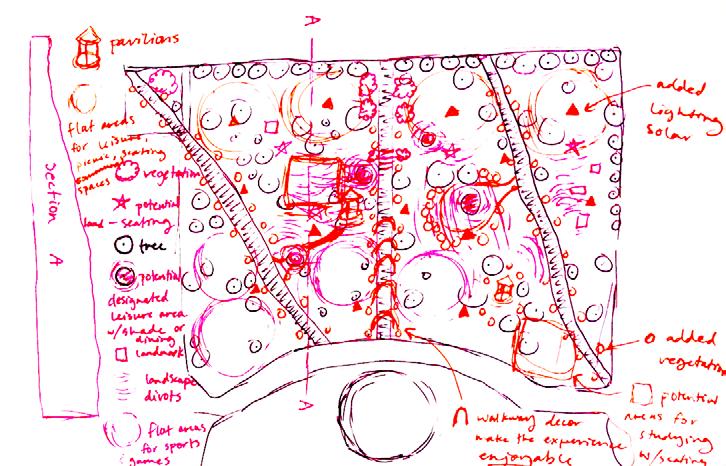 A
pavilions
flat areas
for leisure
picnic, seating
spaces
vegetation
potential
land - seating
tree
potential
designated
leisure area
w/shade or
dining
landmark
landscape
divots
flat areas
for sports
games
Section
A
added
lighting
solar
added
vegetation
potential
areas for
studying
w/seating
A
walkway decor
make the experience
enjoyable